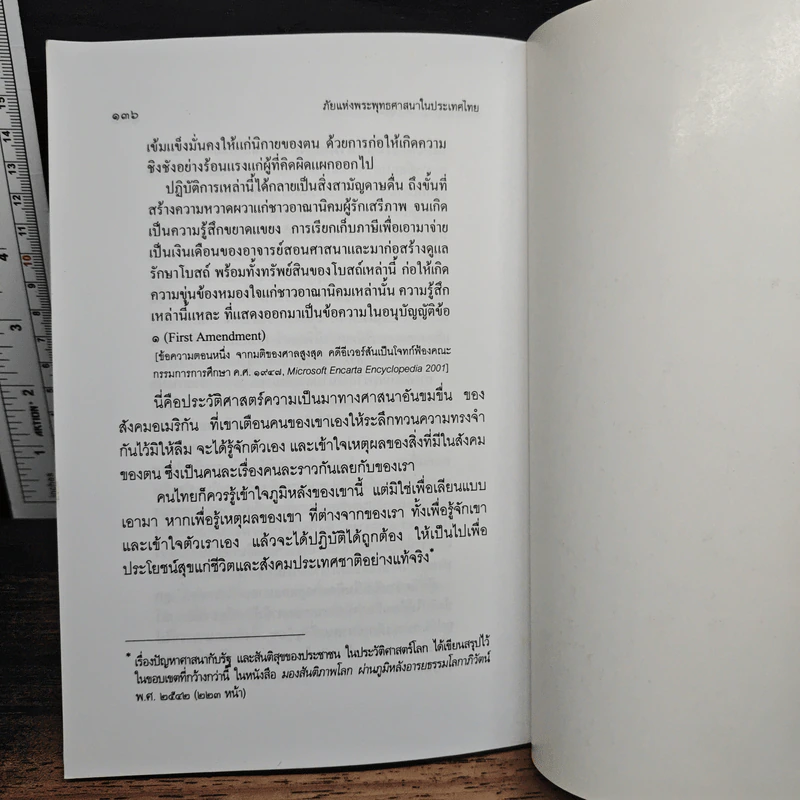 ๑๓๖
ภัยแห่งพระพุทธศาสนาในประเทศไทย
เข้มแข็งมั่นคงให้แก่นิกายของตน ด้วยการก่อให้เกิดความ
ชิงชังอย่างร้อนแรงแก่ผู้ที่คิดผิดแผกออกไป
ปฏิบัติการเหล่านี้ได้กลายเป็นสิ่งสามัญดาษดื่น ถึงขั้นที่
สร้างความหวาดผวาแก่ชาวอาณานิคมผู้รักเสรีภาพ จนเกิด
เป็นความรู้สึกขยาดแขยง การเรียกเก็บภาษีเพื่อเอามาจ่าย
เป็นเงินเดือนของอาจารย์สอนศาสนาและมาก่อสร้างดูแล
รักษาโบสถ์ พร้อมทั้งทรัพย์สินของโบสถ์เหล่านี้ ก่อให้เกิด
ความขุ่นข้องหมองใจแก่ชาวอาณานิคมเหล่านั้น ความรู้สึก
เหล่านี้แหละ ที่แสดงออกมาเป็นข้อความในอนุบัญญัติข้อ
๑ (First Amendment)
[ข้อความตอนหนึ่ง จากมติของศาลสูงสุด คดีอีเวอร์สันเป็นโจทก์ฟ้องคณะ
กรรมการการศึกษา ค.ศ. ๑๙๔๗, Microsoft Encarta Encyclopedia 2001]
นี่คือประวัติศาสตร์ความเป็นมาทางศาสนาอันขมขื่น ของ
สังคมอเมริกัน ที่เขาเตือนคนของเขาเองให้ระลึกทวนความทรงจำ
กันไว้มิให้ลืม จะได้รู้จักตัวเอง และเข้าใจเหตุผลของสิ่งที่มีในสังคม
ของตน ซึ่งเป็นคนละเรื่องคนละราวกันเลยกับของเรา
คนไทยก็ควรรู้เข้าใจภูมิหลังของเขานี้ แต่มิใช่เพื่อเลียนแบบ
เอามา หากเพื่อรู้เหตุผลของเขา ที่ต่างจากของเรา ทั้งเพื่อรู้จักเขา
และเข้าใจตัวเราเอง แล้วจะได้ปฏิบัติได้ถูกต้อง ให้เป็นไปเพื่อ
ประโยชน์สุขแก่ชีวิตและสังคมประเทศชาติอย่างแท้จริง*
* เรื่องปัญหาศาสนากับรัฐ และสันติสุขของประชาชน ในประวัติศาสตร์โลก ได้เขียนสรุปไว้
ในขอบเขตที่กว้างกว่านี้ ในหนังสือ มองสันติภาพโลก ผ่านภูมิหลังอารยธรรมโลกาภิวัตน์
พ.ศ. ๒๕๔๒ (๒๒๓ หน้า)